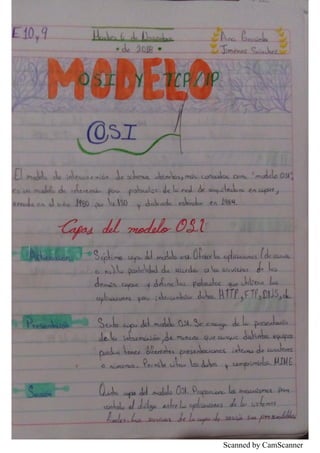 E10,9
Martes 4 de Diciembre
de 2018
Ana Graciela
Jiménez Sánchez
MODELO
OSI Y TCP/IP
OSI
El modelo de interconexión de sistemas abiertos, más conocido como "modelo OSI",
es un modelo de referencia para protocolos de la red de arquitectura en capas,
creado en el año 1980 por la ISO y declarado estándar en 1984.
Capas del modelo OSI
Aplicación
Séptima capa del modelo OSI. Ofrece las aplicaciones (de usuario
o no) la posibilidad de acceder a los servicios de las
demás capas y define los protocolos que utilizan las
aplicaciones para intercambiar datos. HTTP, FTP, DNS,
Presentación
Sexta capa del modelo OSI. Se encarga de la presentación
de la información, de manera que aunque distintos equipos
puedan tener diferentes representaciones interna de caracteres
o números. Permite cifrar los datos y comprimirlos. MIME
Sesión
Quinta capa del modelo OSI. Proporciona los mecanismos para
controlar el diálogo entre las aplicaciones de los sistemas
los servicios de la capa de sesión son prescindibles
Scanned by CamScanner